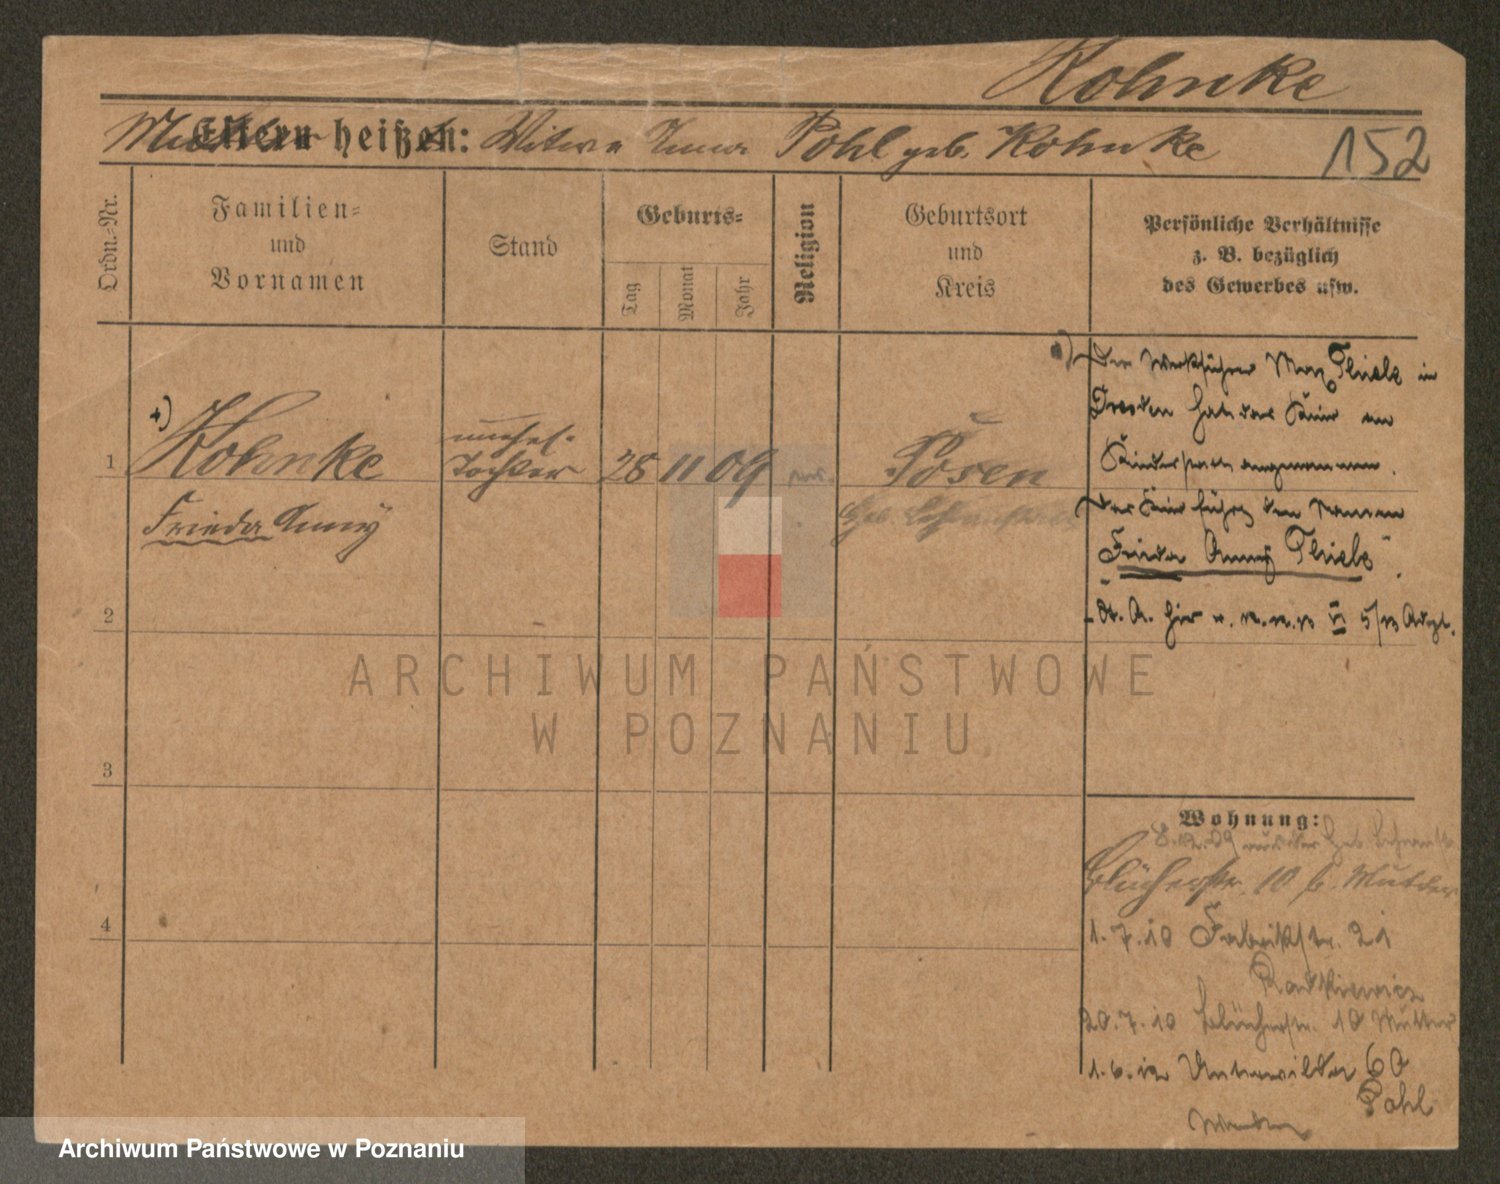 Kohnke
Eltern heißen: Witwe Anna Pohl geb. Kohnke
152
Ordn.-Nr.
Familien-
und
Vornamen
Stand
Geburts-
Tag
Monat
Jahr
Religion
Geburtsort
und
Kreis
Persönliche Verhältnisse
z. B. bezüglich
des Gewerbes usw.
1
+)
Kohnke
Frieda Anny
unehel.
Tochter
28 11 09
Posen
Der Werkführer Max Thiele in
Dresden hat das Kind an
Kindesstatt angenommen.
Das Kind führt den Namen
Frieda Anny Thiele".
2
3
4
Wohnung:
8.12.09 aus der Heb. Lehranst.
Blücherstr. 10 b. Mutter
1.7.10 Fabrikstr. 21
Ratkiewicz
20.7.10 Blücherstr. 10 Mutter
1.6.12 Unterwilda 60
Pohl
Wenden
ARCHIWUM PAŃSTWOWE
W POZNANIU
Archiwum Państwowe w Poznaniu